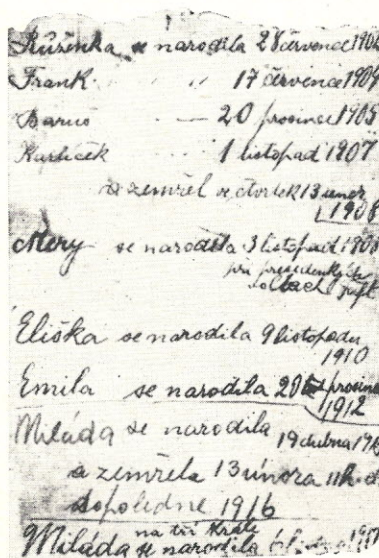 Růženka se narodila 28 července 1902
Frank " " 17 července 1904
Barus — 20 prosince 1905
Karlíček 1 listopad 1907
a zemřel ve čtvrtek 13 únor
1908
Mery se narodila 3 listopad 1908
při presidenkých
volbách
Eliška se narodila 9 listopadu
1910
Emila se narodila 20 prosince
1912
Miláda se narodila 19 dubna
a zemřela 13 února 11 h.
dopoledne 1916
na tři Krále
Miláda se narodila 6